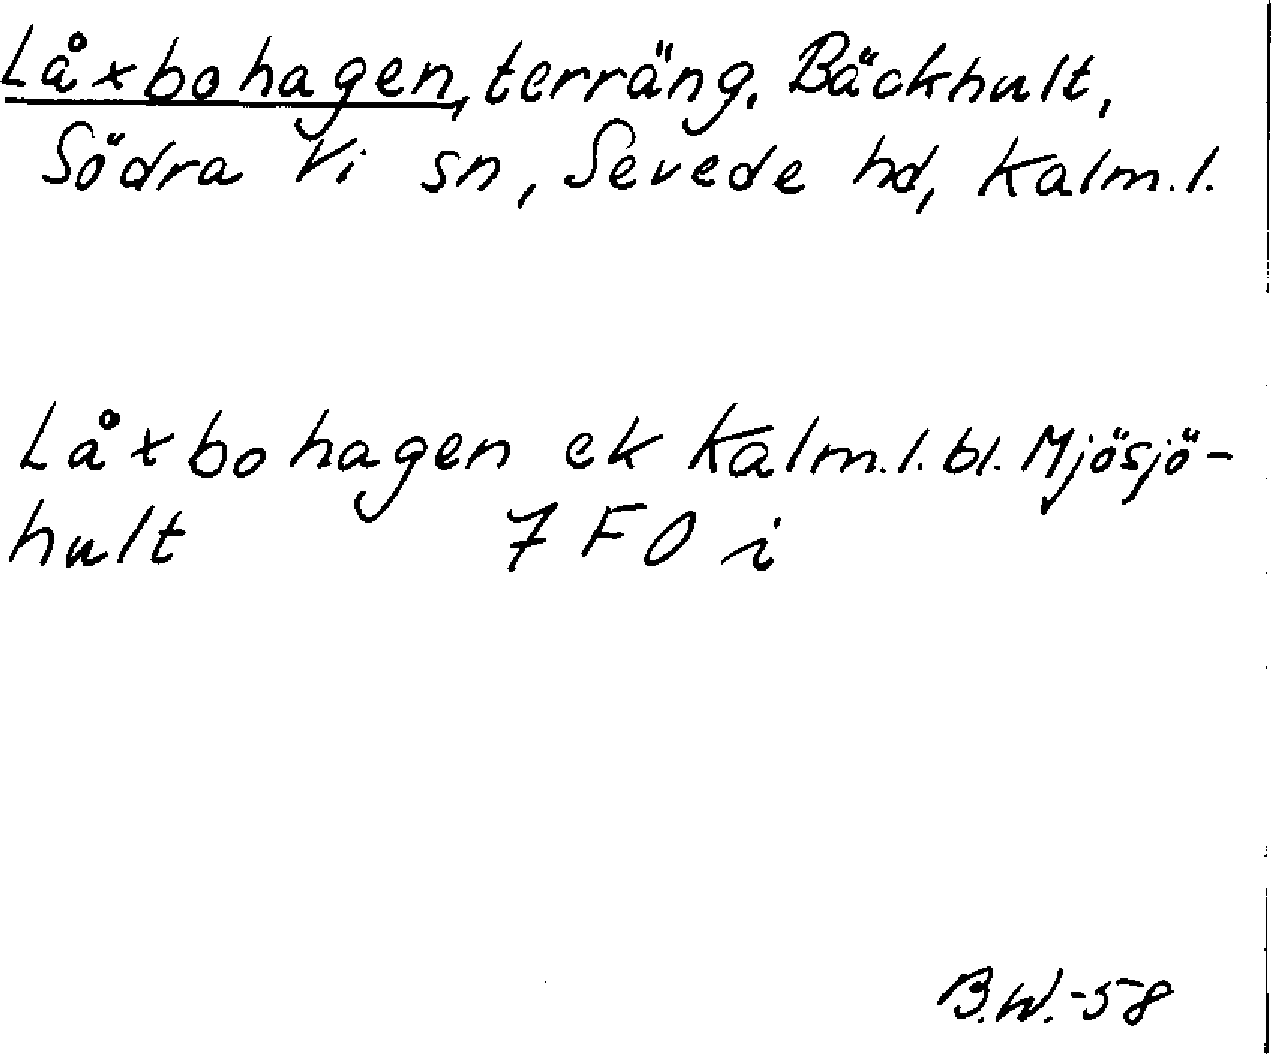 Låxbohagen, terräng, Bäckhult,
Södra Vi sn, Sevede hd, Kalm.l.
Låxbohagen ek Kalm.l.bl. Mjösjö-
hult 7 F O i
B.W.-58